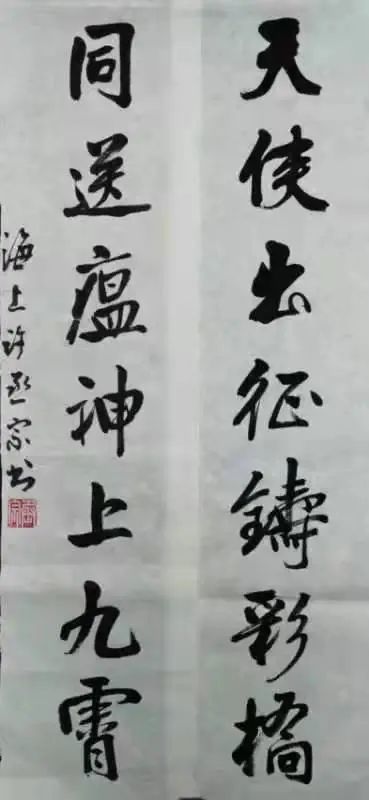 天使出征鑄彩橋
同送瘟神上九霄
海上许丞宗书